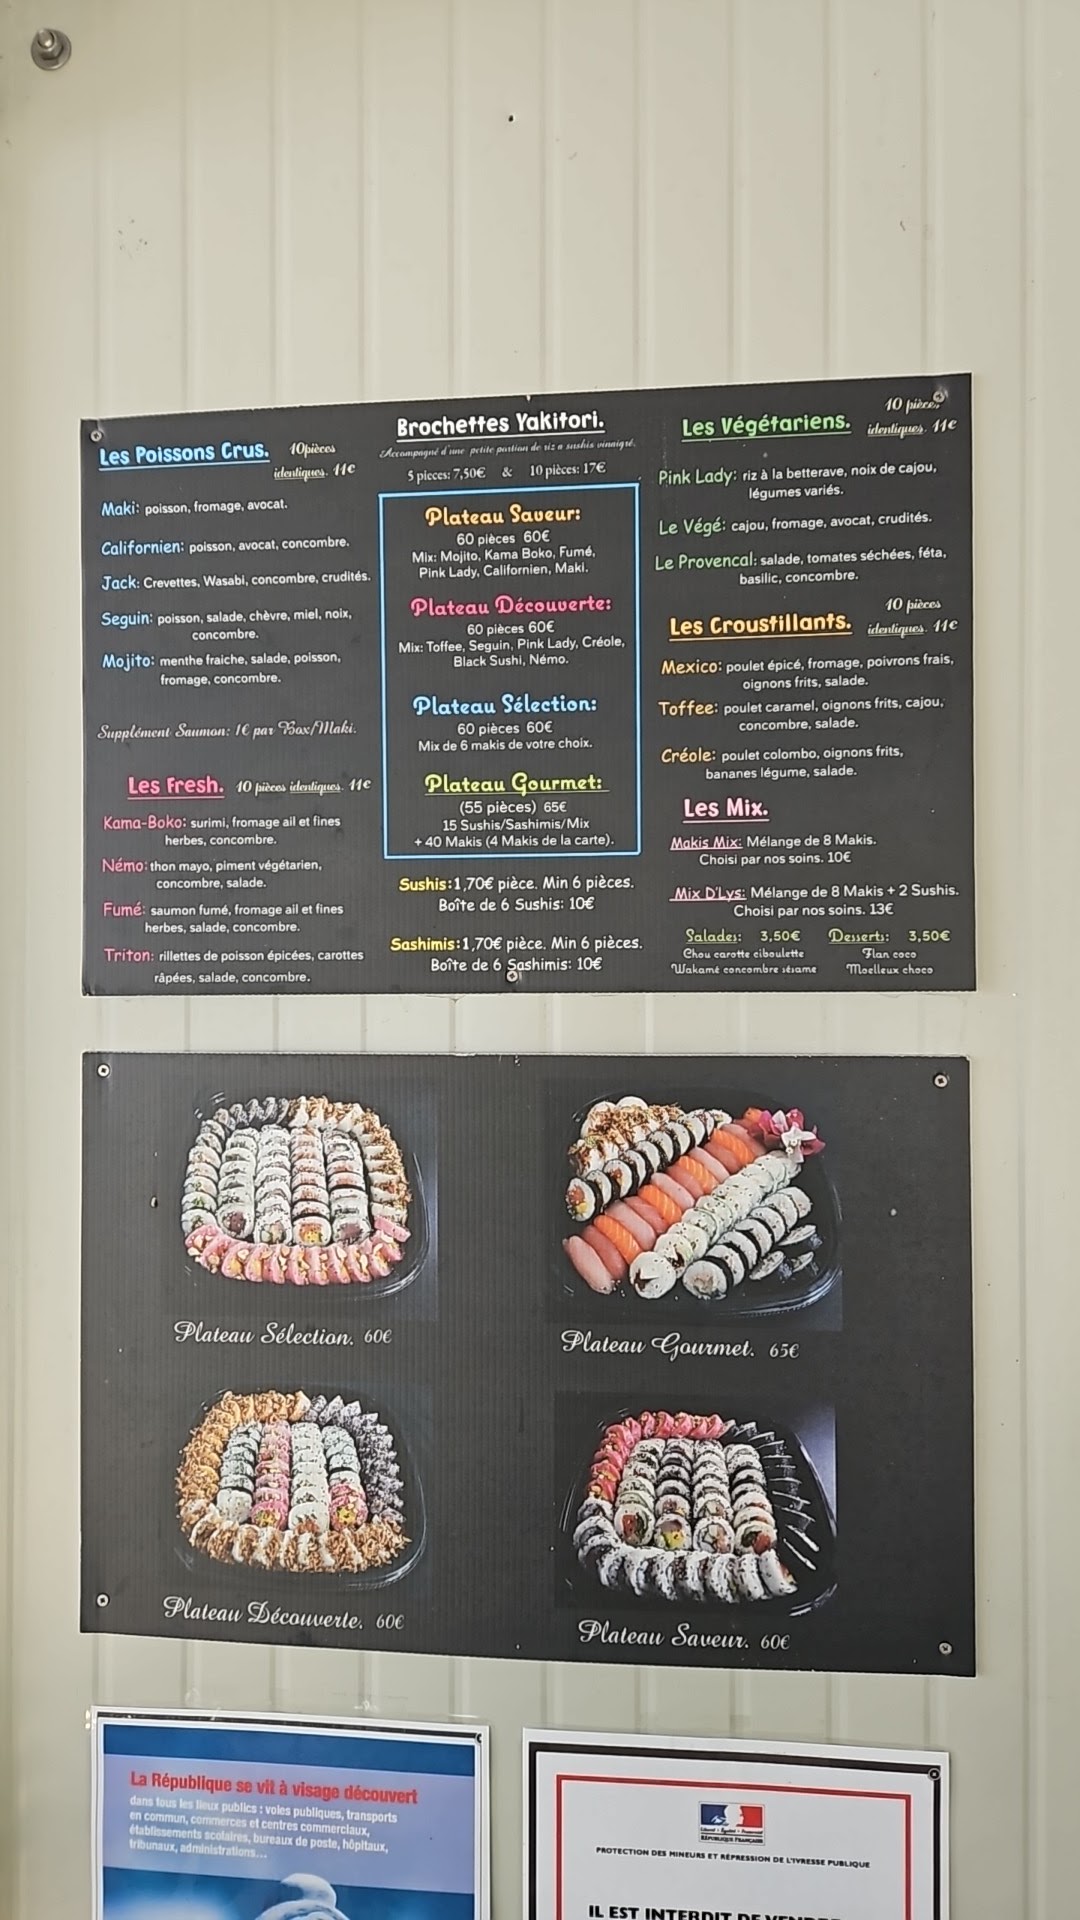 Les Poissons Crus. 10pièces
identiques. 11€
Maki: poisson, fromage, avocat.
Californien: poisson, avocat, concombre.
Jack: Crevettes, Wasabi, concombre, crudités.
Seguin: poisson, salade, chèvre, miel, noix,
concombre.
Mojito: menthe fraiche, salade, poisson,
fromage, concombre.
Supplément Saumon: 1€ par Box/Maki.
Les Fresh. 10 pièces identiques. 11€
Kama-Boko: surimi, fromage ail et fines
herbes, concombre.
Némo: thon mayo, piment végétarien,
concombre, salade.
Fumé: saumon fumé, fromage ail et fines
herbes, salade, concombre.
Triton: rillettes de poisson épicées, carottes
râpées, salade, concombre.
Brochettes Yakitori.
Accompagné d'une petite portion de riz a sushis vinaigré.
5 pieces: 7,50€ & 10 pièces: 17€
Plateau Saveur:
60 pièces 60€
Mix: Mojito, Kama Boko, Fumé,
Pink Lady, Californien, Maki.
Plateau Découverte:
60 pièces 60€
Mix: Toffee, Seguin, Pink Lady, Créole,
Black Sushi, Némo.
Plateau Sélection:
60 pièces 60€
Mix de 6 makis de votre choix.
Plateau Gourmet:
(55 pièces) 65€
15 Sushis/Sashimis/Mix
+ 40 Makis (4 Makis de la carte).
Sushis:1,70€ pièce. Min 6 pièces.
Boîte de 6 Sushis: 10€
Sashimis:1,70€ pièce. Min 6 pièces.
Boîte de 6 Sashimis: 10€
Les Végétariens. 10 pièces
identiques. 11€
Pink Lady: riz à la betterave, noix de cajou,
légumes variés.
Le Végé: cajou, fromage, avocat, crudités.
Le Provencal: salade, tomates séchées, féta,
basilic, concombre.
Les Croustillants. 10 pièces
identiques. 11€
Mexico: poulet épicé, fromage, poivrons frais,
oignons frits, salade.
Toffee: poulet caramel, oignons frits, cajou,
concombre, salade.
Créole: poulet colombo, oignons frits,
bananes légume, salade.
Les Mix.
Makis Mix: Mélange de 8 Makis.
Choisi par nos soins. 10€
Mix D'Lys: Mélange de 8 Makis + 2 Sushis.
Choisi par nos soins. 13€
Salades: 3,50€
Chou carotte ciboulette
Wakamé concombre sésame
Desserts: 3,50€
Flan coco
Moelleux choco
Plateau Sélection. 60€
Plateau Gourmet. 65€
Plateau Découverte. 60€
Plateau Saveur. 60€
La République se vit à visage découvert
dans tous les lieux publics : voies publiques, transports
en commun, commerces et centres commerciaux,
établissements scolaires, bureaux de poste, hôpitaux,
tribunaux, administrations...
Liberté • Égalité • Fraternité
RÉPUBLIQUE FRANÇAISE
PROTECTION DES MINEURS ET RÉPRESSION DE L'IVRESSE PUBLIQUE
IL EST INTERDIT DE